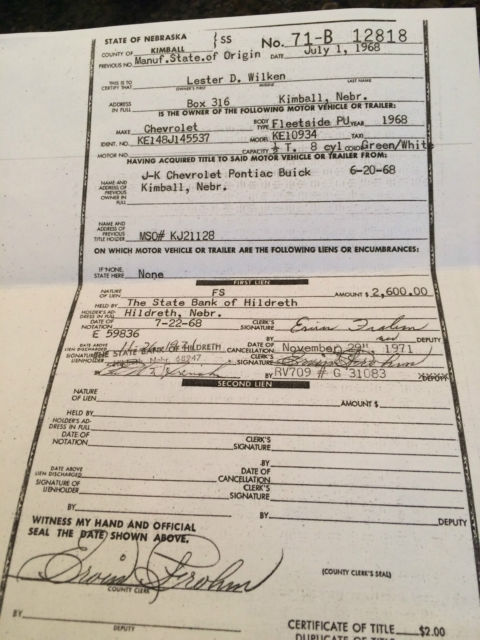 STATE OF NEBRASKA } SS No. 71-B 12818
COUNTY OF KIMBALL
PREVIOUS NO. Manuf.State.of Origin DATE July 1, 1968
THIS IS TO CERTIFY THAT Lester D. Wilken
OWNER'S FIRST MIDDLE LAST NAME
ADDRESS IN FULL Box 316 Kimball, Nebr.
IS THE OWNER OF THE FOLLOWING MOTOR VEHICLE OR TRAILER:
MAKE Chevrolet BODY TYPE Fleetside PU YEAR 1968
IDENT. NO. KE148J145537 MODEL KE10934 TAXI
MOTOR NO. CAPACITY ½ T. 8 cyl COLOR Green/White
HAVING ACQUIRED TITLE TO SAID MOTOR VEHICLE OR TRAILER FROM:
NAME AND ADDRESS OF PREVIOUS OWNER IN FULL
J-K Chevrolet Pontiac Buick 6-20-68
Kimball, Nebr.
NAME AND ADDRESS OF PREVIOUS TITLE HOLDER MSO# KJ21128
ON WHICH MOTOR VEHICLE OR TRAILER ARE THE FOLLOWING LIENS OR ENCUMBRANCES:
IF NONE, STATE HERE None
FIRST LIEN
NATURE OF LIEN FS AMOUNT $ 2,600.00
HELD BY The State Bank of Hildreth
HOLDER'S ADDRESS IN FULL Hildreth, Nebr.
DATE OF NOTATION 7-22-68 CLERK'S SIGNATURE
E 59836 DEPUTY
DATE ABOVE LIEN DISCHARGED DATE OF CANCELLATION November 29th 1971
SIGNATURE OF LIENHOLDER THE STATE BANK HILDRETH CLERK'S SIGNATURE Erwin Frohm
BY BY RV709 # G 31083 DEPUTY
SECOND LIEN
NATURE OF LIEN AMOUNT $
HELD BY
HOLDER'S ADDRESS IN FULL
DATE OF NOTATION CLERK'S SIGNATURE
BY
DATE ABOVE LIEN DISCHARGED DATE OF CANCELLATION
SIGNATURE OF LIENHOLDER CLERK'S SIGNATURE
BY BY DEPUTY
WITNESS MY HAND AND OFFICIAL
SEAL THE DATE SHOWN ABOVE.
Erwin Frohm
COUNTY CLERK (COUNTY CLERK'S SEAL)
BY
DEPUTY
CERTIFICATE OF TITLE $2.00
DUPLICATE OF TITLE